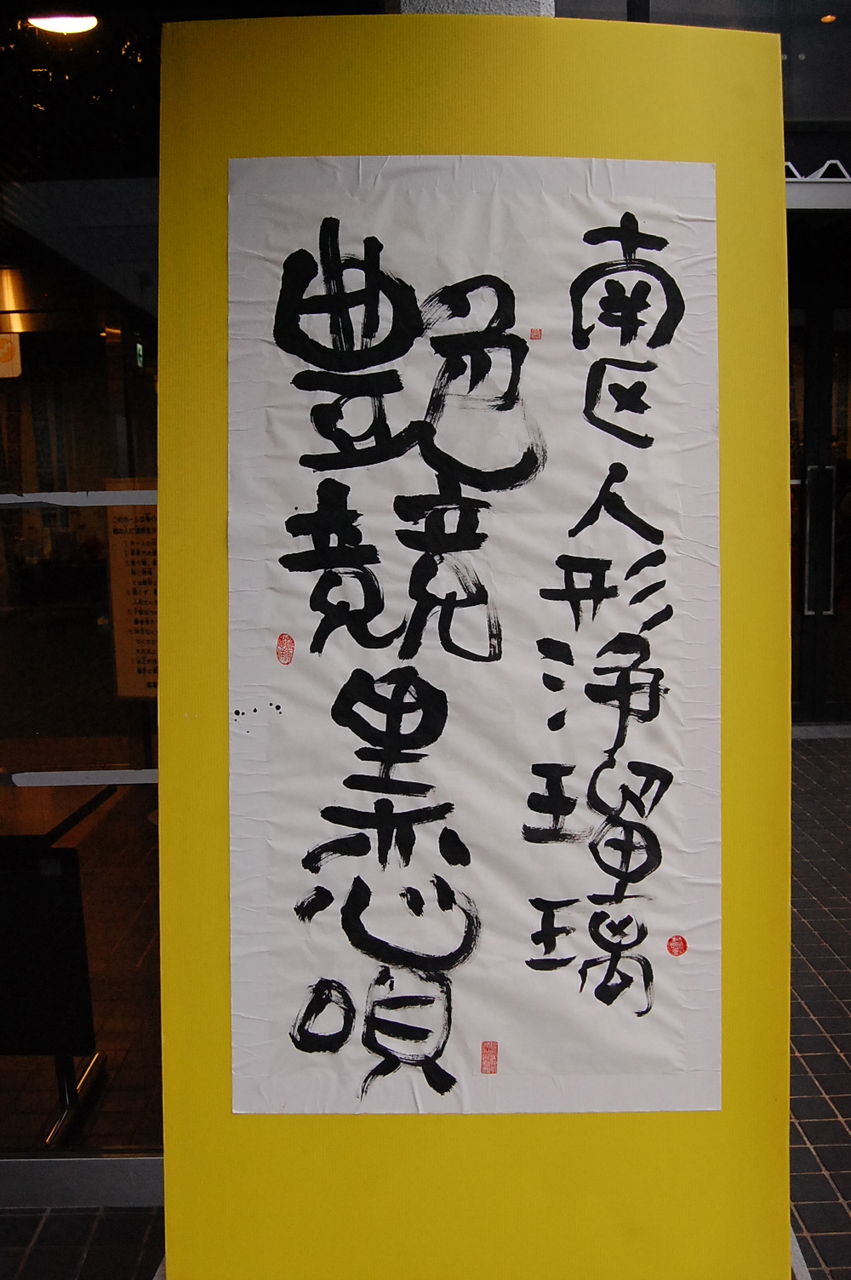 南区人形浄瑠璃
艶競里恋唄